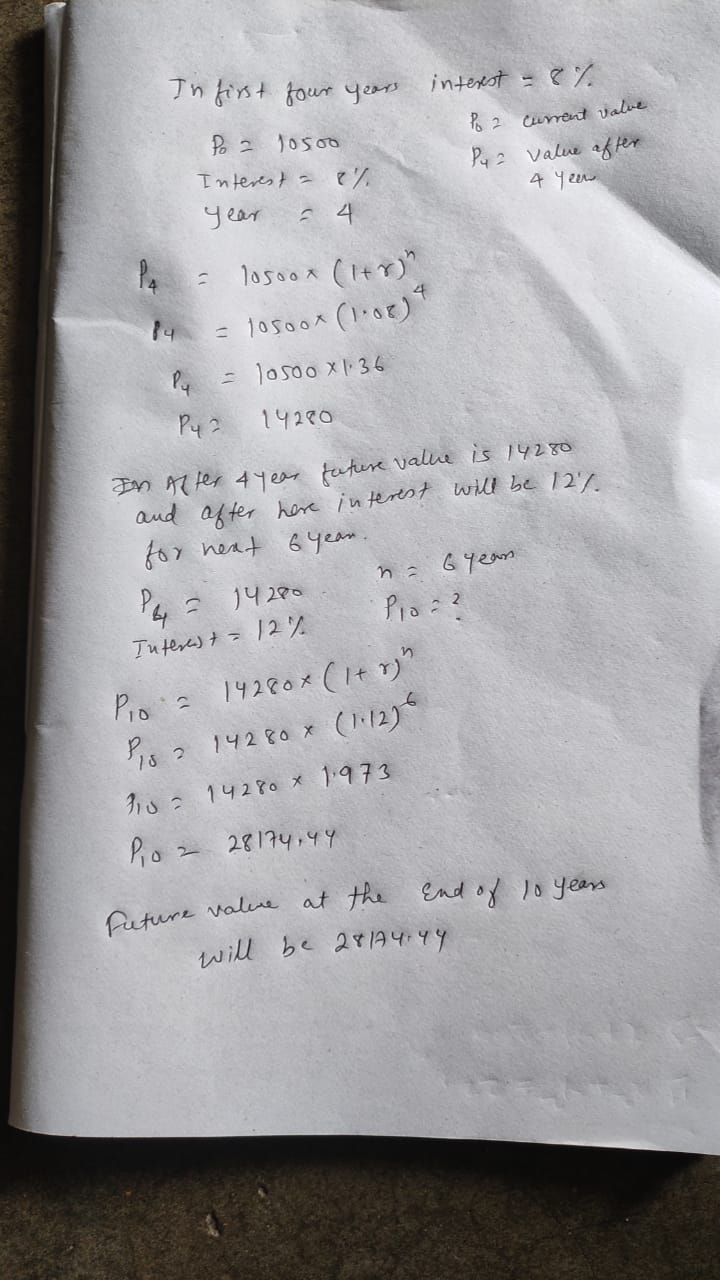 In first four years interest = 8%
P0 = 10500
P0 = current value
Interest = 8%
P4 = value after
4 year
year = 4
P4 = 10500 x (1+r)^n
P4 = 10500x (1.08)^4
P4 = 10500 x 1.36
P4 = 14280
After 4 year future value is 14280
and after here interest will be 12%
for next 6 year.
P4 = 14280
n = 6 years
Interest = 12%
P10 = ?
P10 = 14280 x (1+r)^n
P10 = 14280 x (1.12)^6
P10 = 14280 x 1.973
P10 = 28174.44
Future value at the End of 10 years
will be 28174.44